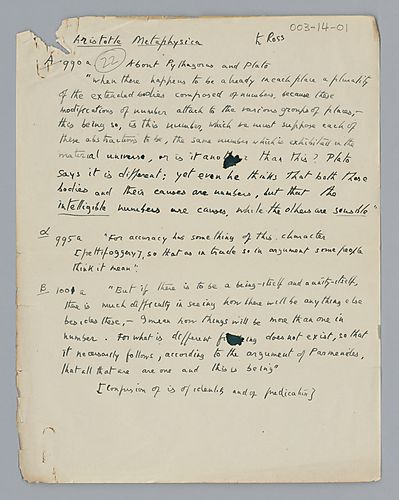 003-14-01
Aristotle Metaphysica Ross
A 990a 22 About Pythagoras and Plato
"When there happens to be already in each place a plurality
of the extended bodies composed of numbers, because these
modifications of number attach to the various groups of places,—
this being so, is this number, which we must suppose each of
these abstractions to be, the same number which is exhibited in the
material universe, or is it another than this? Plato
says it is different; yet even he thinks that both these
bodies and their causes are numbers, but that the
intelligible numbers are causes, while the others are sensible"
α 995a "For accuracy has something of this character
[pettifoggery], so that as in trade so in argument some people
think it mean".
B 1001a "But if there is to be a being-itself and a unity-itself,
there is much difficulty in seeing how there will be anything else
besides these,— I mean how things will be more than one in
number. For what is different f ing does not exist, so that
it necessarily follows, according to the argument of Parmenides,
that all that are are one and this is being"
[Confusion of is of identity and of predication]